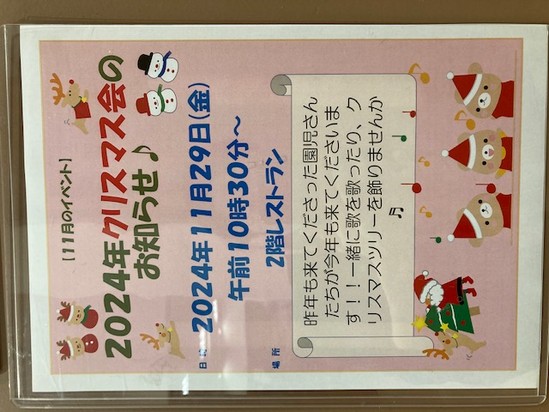 [11月のイベント]
2024年クリスマス会の
お知らせ♪
日時 2024年11月29日(金)
午前10時30分～
場所 2階レストラン
昨年も来てくださった園児さん
たちが今年も来てくださいま
す！！一緒に歌を歌ったり、ク
リスマスツリーを飾りませんか
♬